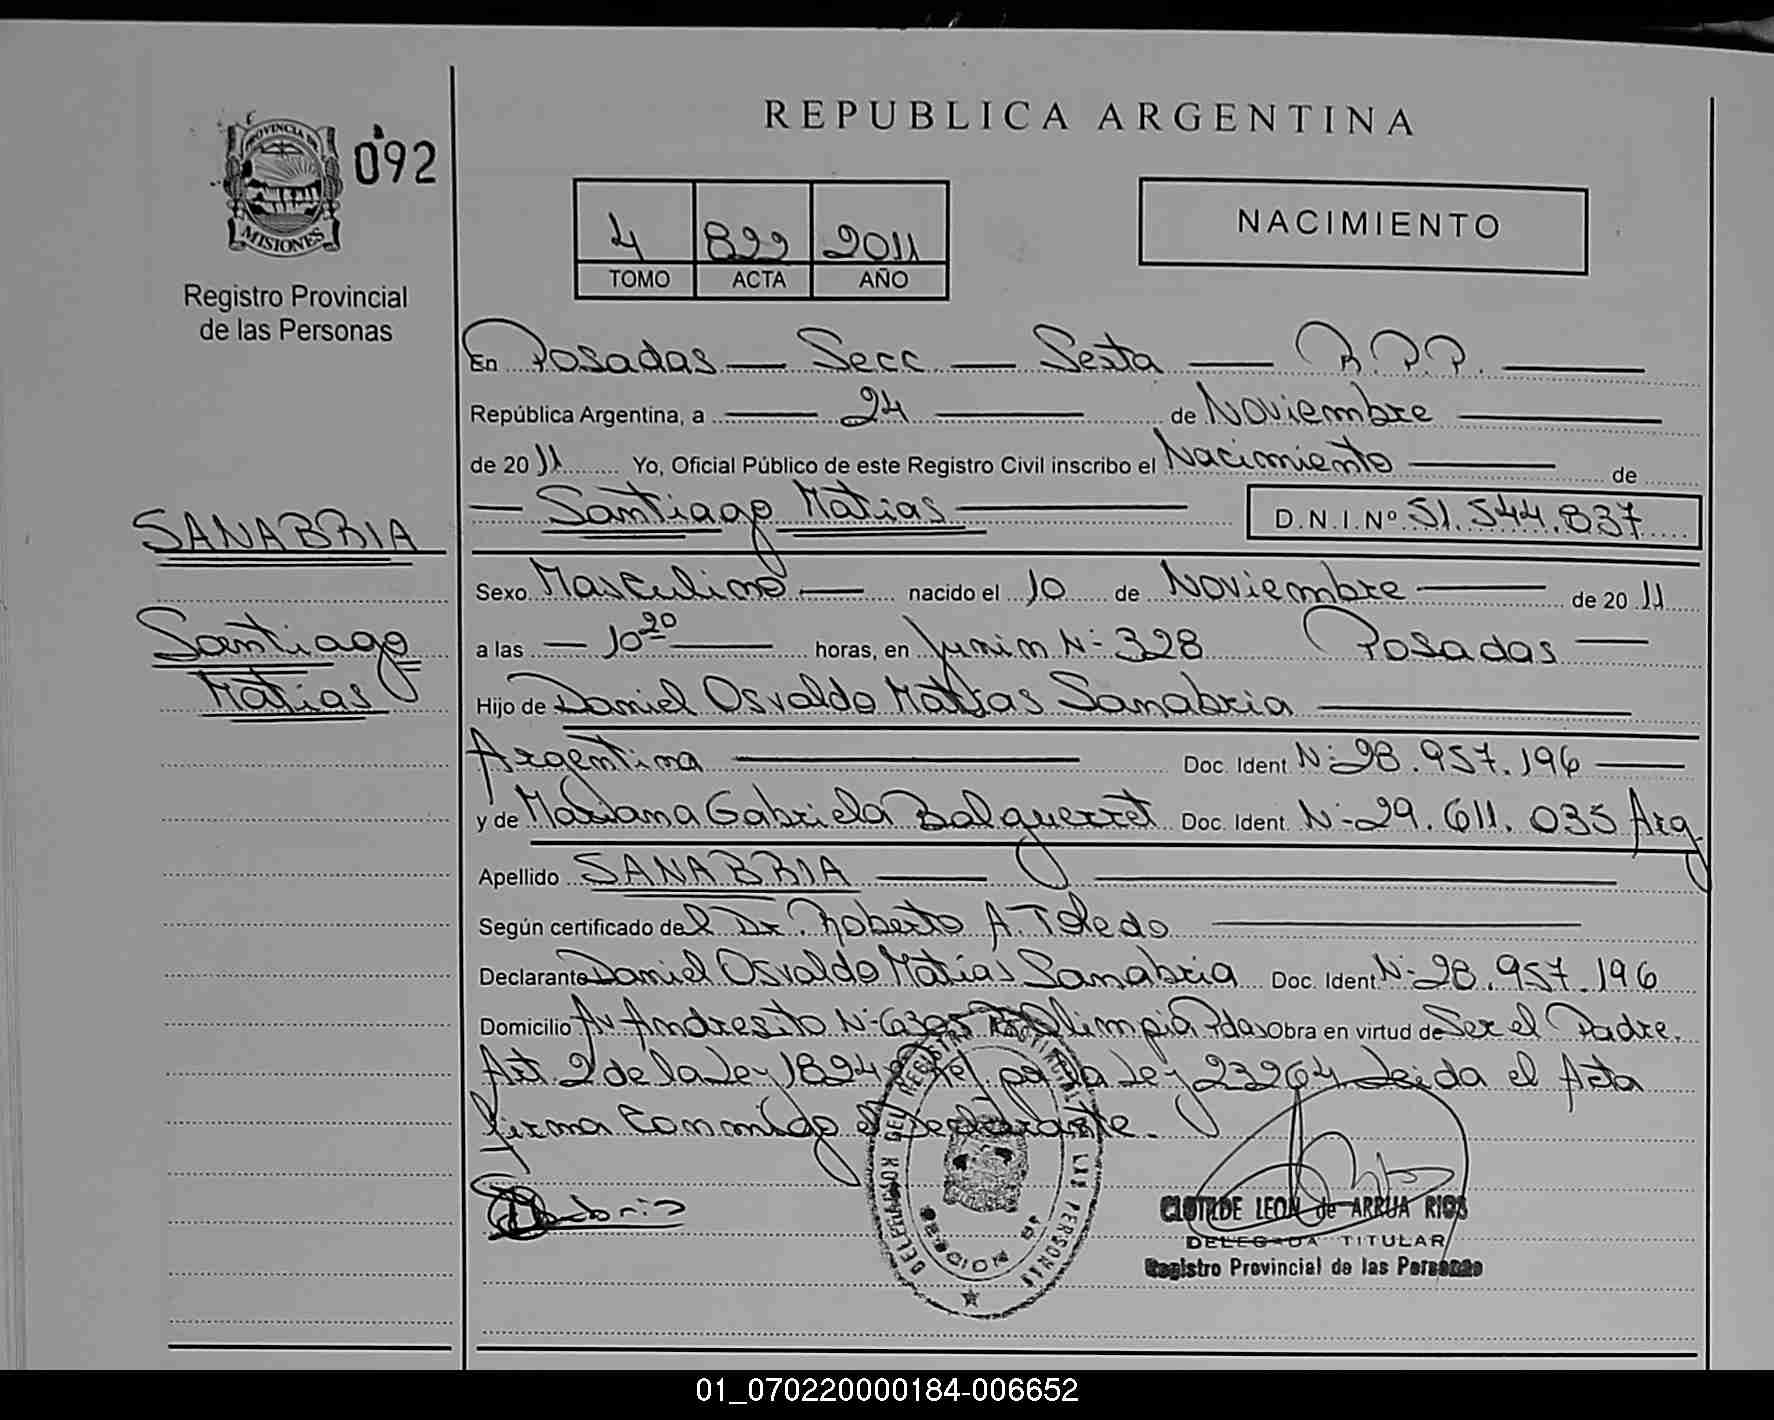 REPUBLICA ARGENTINA
PROVINCIA DE
MISIONES
092
Registro Provincial
de las Personas
4 822 2011
TOMO ACTA AÑO
NACIMIENTO
En Posadas — Secc — Sexta — R.P.P. —
República Argentina, a — 24 — de Noviembre —
de 20 11 Yo, Oficial Público de este Registro Civil inscribo el Nacimiento — de
— Santiago Matias — D.N.I.Nº 51.544.837
SANABRIA
Santiago
Matias
Sexo Masculino — nacido el 10 de Noviembre — de 20 11
a las — 10 20 — horas, en Junin Nº 328 Posadas —
Hijo de Daniel Osvaldo Matias Sanabria —
Argentina — Doc. Ident. Nº 28.957.196 —
y de Mariana Gabriela Balguerret Doc. Ident. Nº 29.611.035 Arg
Apellido SANABRIA —
Según certificado del Dr. Roberto A. Toledo —
Declarante Daniel Osvaldo Matias Sanabria Doc. Ident. Nº 28.957.196
Domicilio Av Andresito Nº Olimpia Pdas Obra en virtud de Ser el Padre.
Art. 2 de la Ley por la Ley 23264 Leida el Acta
firma Conmigo el Declarante.
DELEGACION DEL REGISTRO DE LAS PERSONAS
SECCION 6ª
CLOTILDE LEON de ARRUA RIOS
DELEGADA TITULAR
Registro Provincial de las Personas
01_070220000184-006652